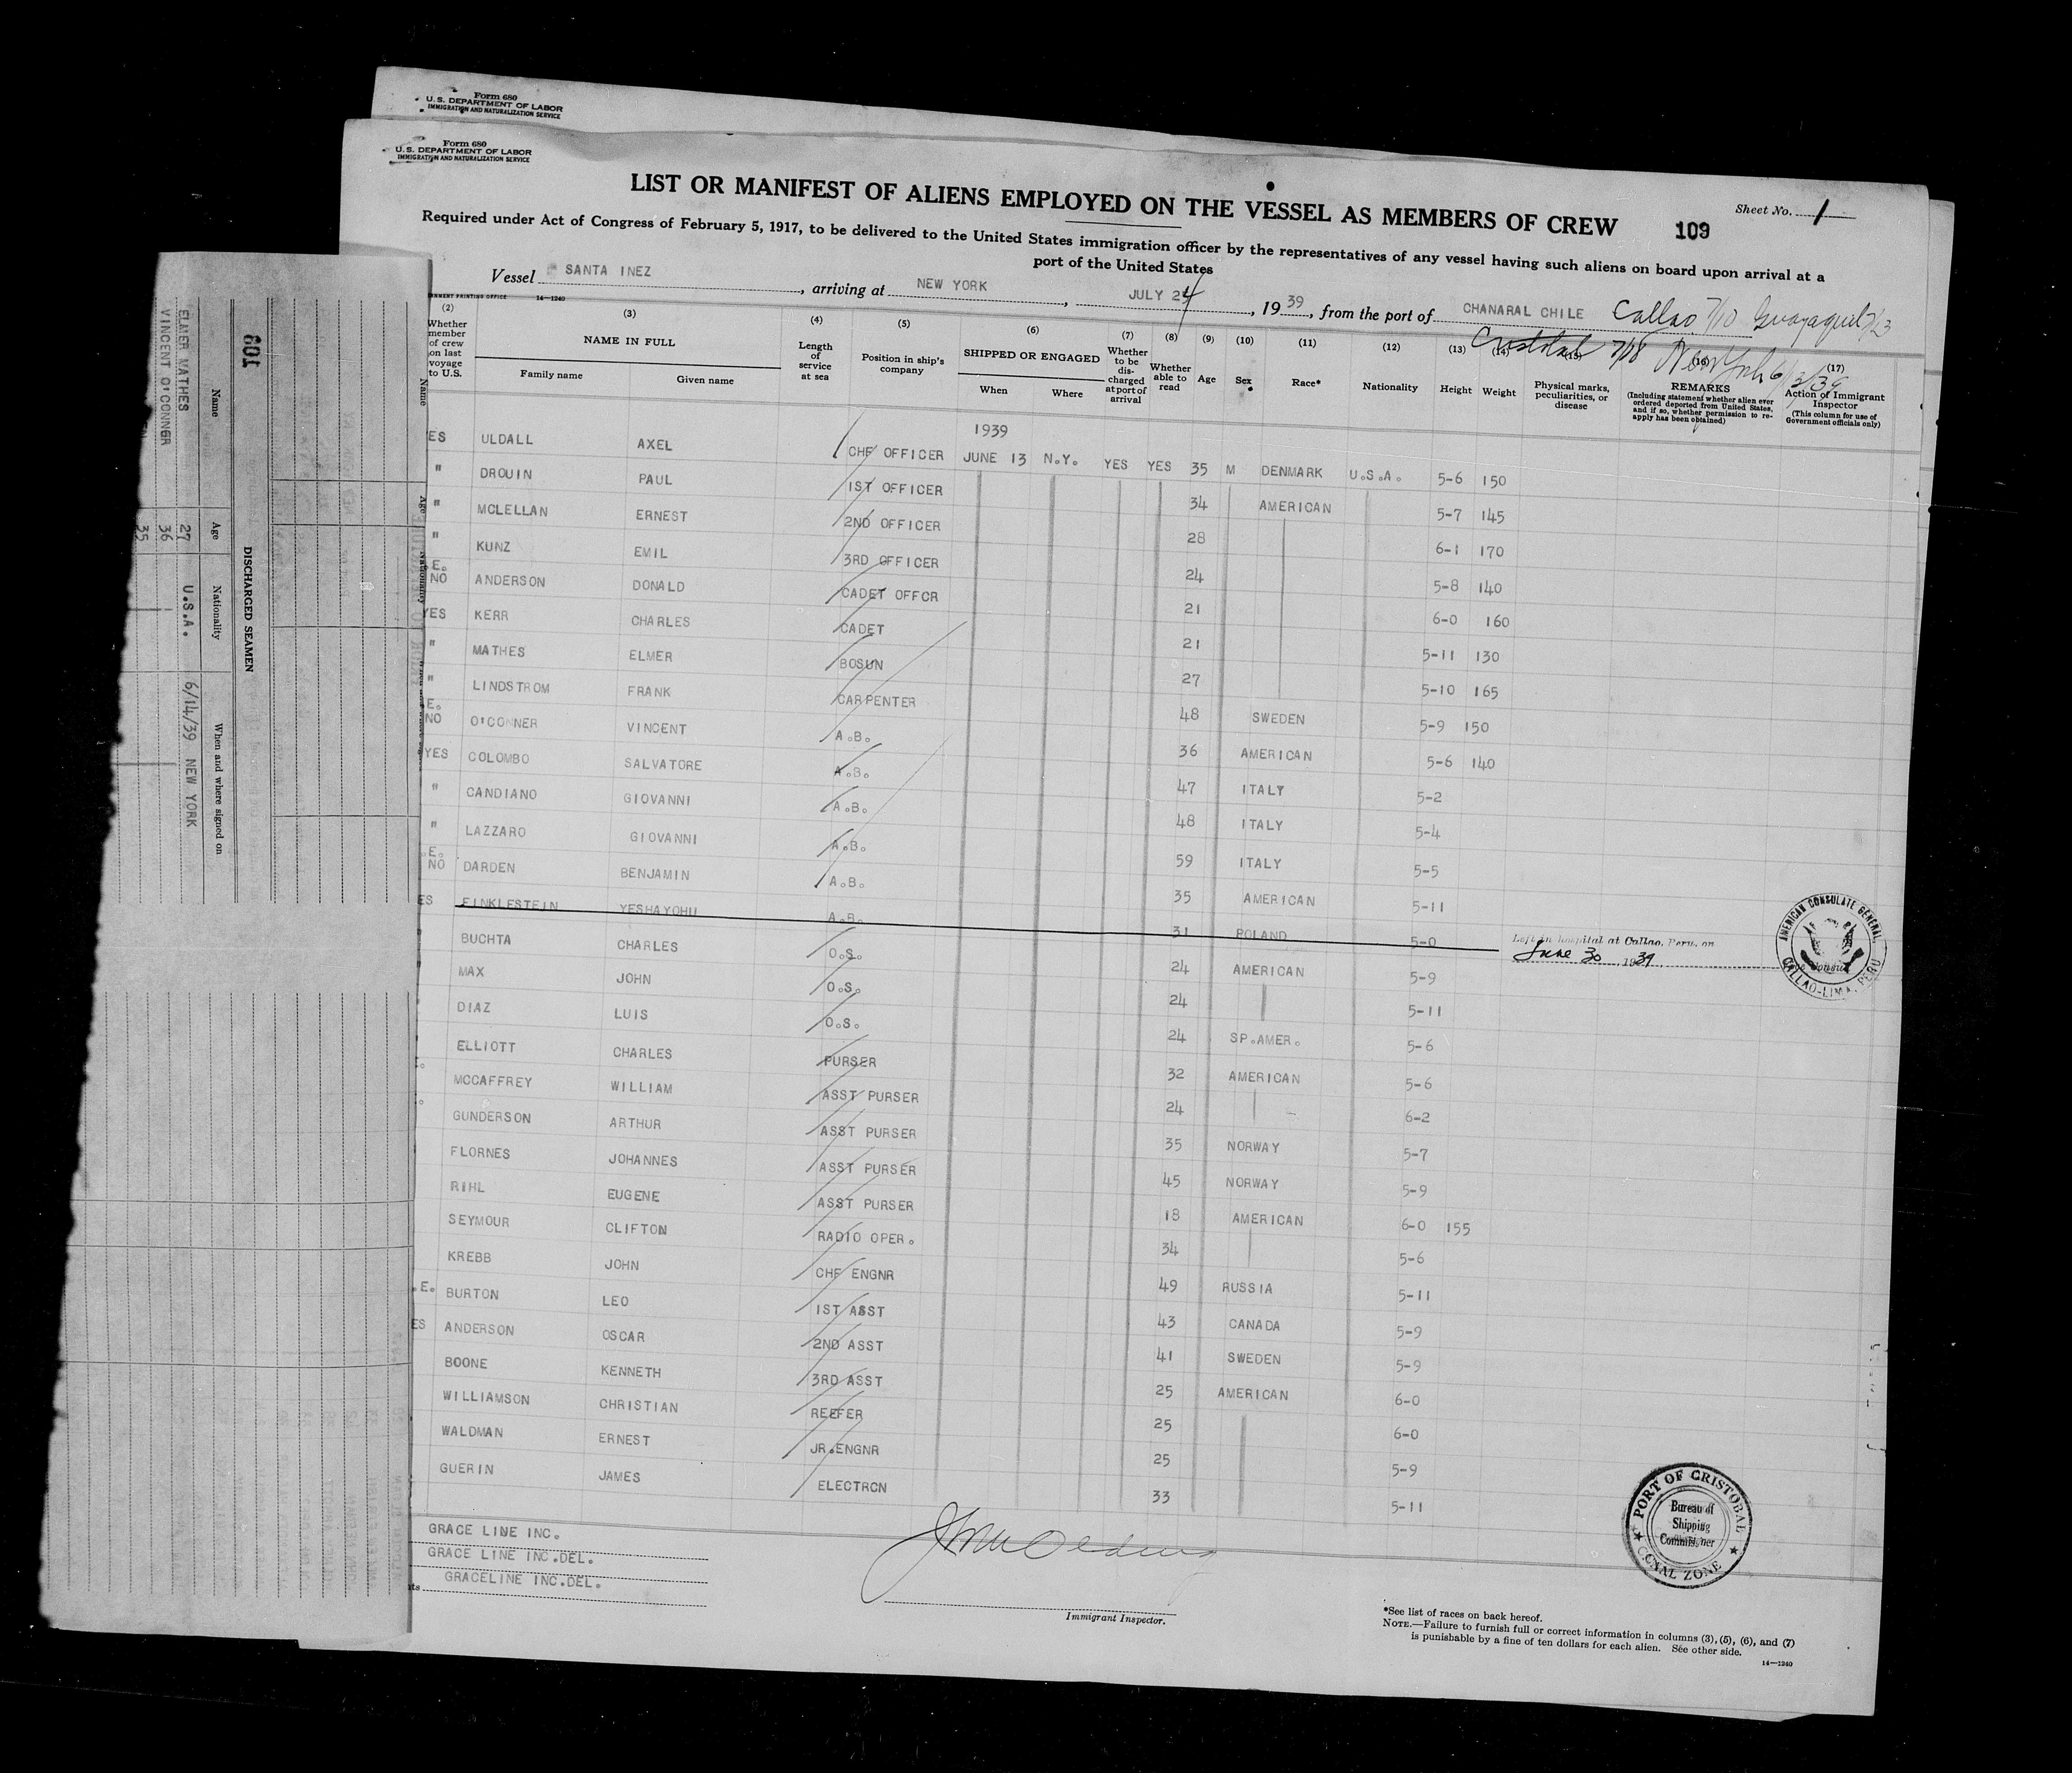 Form 680
U. S. DEPARTMENT OF LABOR
IMMIGRATION AND NATURALIZATION SERVICE
Form 680
U. S. DEPARTMENT OF LABOR
IMMIGRATION AND NATURALIZATION SERVICE
LIST OR MANIFEST OF ALIENS EMPLOYED ON THE VESSEL AS MEMBERS OF CREW
Sheet No. 1
109
Required under Act of Congress of February 5, 1917, to be delivered to the United States immigration officer by the representatives of any vessel having such aliens on board upon arrival at a
port of the United States
Vessel SANTA INEZ, arriving at NEW YORK, JULY 24, 1939, from the port of CHANARAL CHILE Callao 7/10 Guayaquil 7/13
Cristobal 7/18 New York 6/13/39
14—1240
(2) (3) (4) (5) (6) (7) (8) (9) (10) (11) (12) (13) (14) (15) (16) (17)
Whether member of crew on last voyage to U.S.
NAME IN FULL
Family name Given name
Length of service at sea
Position in ship's company
SHIPPED OR ENGAGED
When Where
Whether to be discharged at port of arrival
Whether able to read
Age
Sex
Race*
Nationality
Height
Weight
Physical marks, peculiarities, or disease
REMARKS
(Including statement whether alien ever ordered deported from United States, and if so, whether permission to reapply has been obtained)
Action of Immigrant Inspector
(This column for use of Government officials only)
1939
ES ULDALL AXEL CHF OFFICER JUNE 13 N.Y. YES YES 35 M DENMARK U.S.A. 5-6 150
" DROUIN PAUL 1ST OFFICER 34 AMERICAN 5-7 145
" MCLELLAN ERNEST 2ND OFFICER 28 6-1 170
" KUNZ EMIL 3RD OFFICER 24 5-8 140
E. NO ANDERSON DONALD CADET OFFCR 21 6-0 160
YES KERR CHARLES CADET 21 5-11 130
" MATHES ELMER BOSUN 27 5-10 165
" LINDSTROM FRANK CARPENTER 48 SWEDEN 5-9 150
E. NO O'CONNER VINCENT A.B. 36 AMERICAN 5-6 140
YES COLOMBO SALVATORE A.B. 47 ITALY 5-2
" CANDIANO GIOVANNI A.B. 48 ITALY 5-4
" LAZZARO GIOVANNI A.B. 59 ITALY 5-5
.E. NO DARDEN BENJAMIN A.B. 35 AMERICAN 5-11
ES FINKLESTEIN YESHAYOHU A.B. 31 POLAND 5-0 Left in hospital at Callao, Peru, on June 30 1939
BUCHTA CHARLES O.S. 24 AMERICAN 5-9
MAX JOHN O.S. 24 5-11
DIAZ LUIS O.S. 24 SP.AMER. 5-6
ELLIOTT CHARLES PURSER 32 AMERICAN 5-6
MCCAFFREY WILLIAM ASST PURSER 24 6-2
GUNDERSON ARTHUR ASST PURSER 35 NORWAY 5-7
FLORNES JOHANNES ASST PURSER 45 NORWAY 5-9
RIHL EUGENE ASST PURSER 18 AMERICAN 6-0 155
SEYMOUR CLIFTON RADIO OPER. 34 5-6
KREBB JOHN CHF ENGNR 49 RUSSIA 5-11
.E. BURTON LEO 1ST ASST 43 CANADA 5-9
ES ANDERSON OSCAR 2ND ASST 41 SWEDEN 5-9
BOONE KENNETH 3RD ASST 25 AMERICAN 6-0
WILLIAMSON CHRISTIAN REEFER 25 6-0
WALDMAN ERNEST JR.ENGNR 25 5-9
GUERIN JAMES ELECTRCN 33 5-11
AMERICAN CONSULATE GENERAL
CALLAO-LIMA, PERU
PORT OF CRISTOBAL
Bureau of
Shipping
Commissioner
CANAL ZONE
GRACE LINE INC.
GRACE LINE INC.DEL.
GRACELINE INC.DEL.
Immigrant Inspector.
*See list of races on back hereof.
NOTE.—Failure to furnish full or correct information in columns (3), (5), (6), and (7)
is punishable by a fine of ten dollars for each alien. See other side.
14—1240
109
DISCHARGED SEAMEN
Name Age Nationality When and where signed on
ELMER MATHES 27 U.S.A. 6/14/39 NEW YORK
VINCENT O'CONNER 36
35